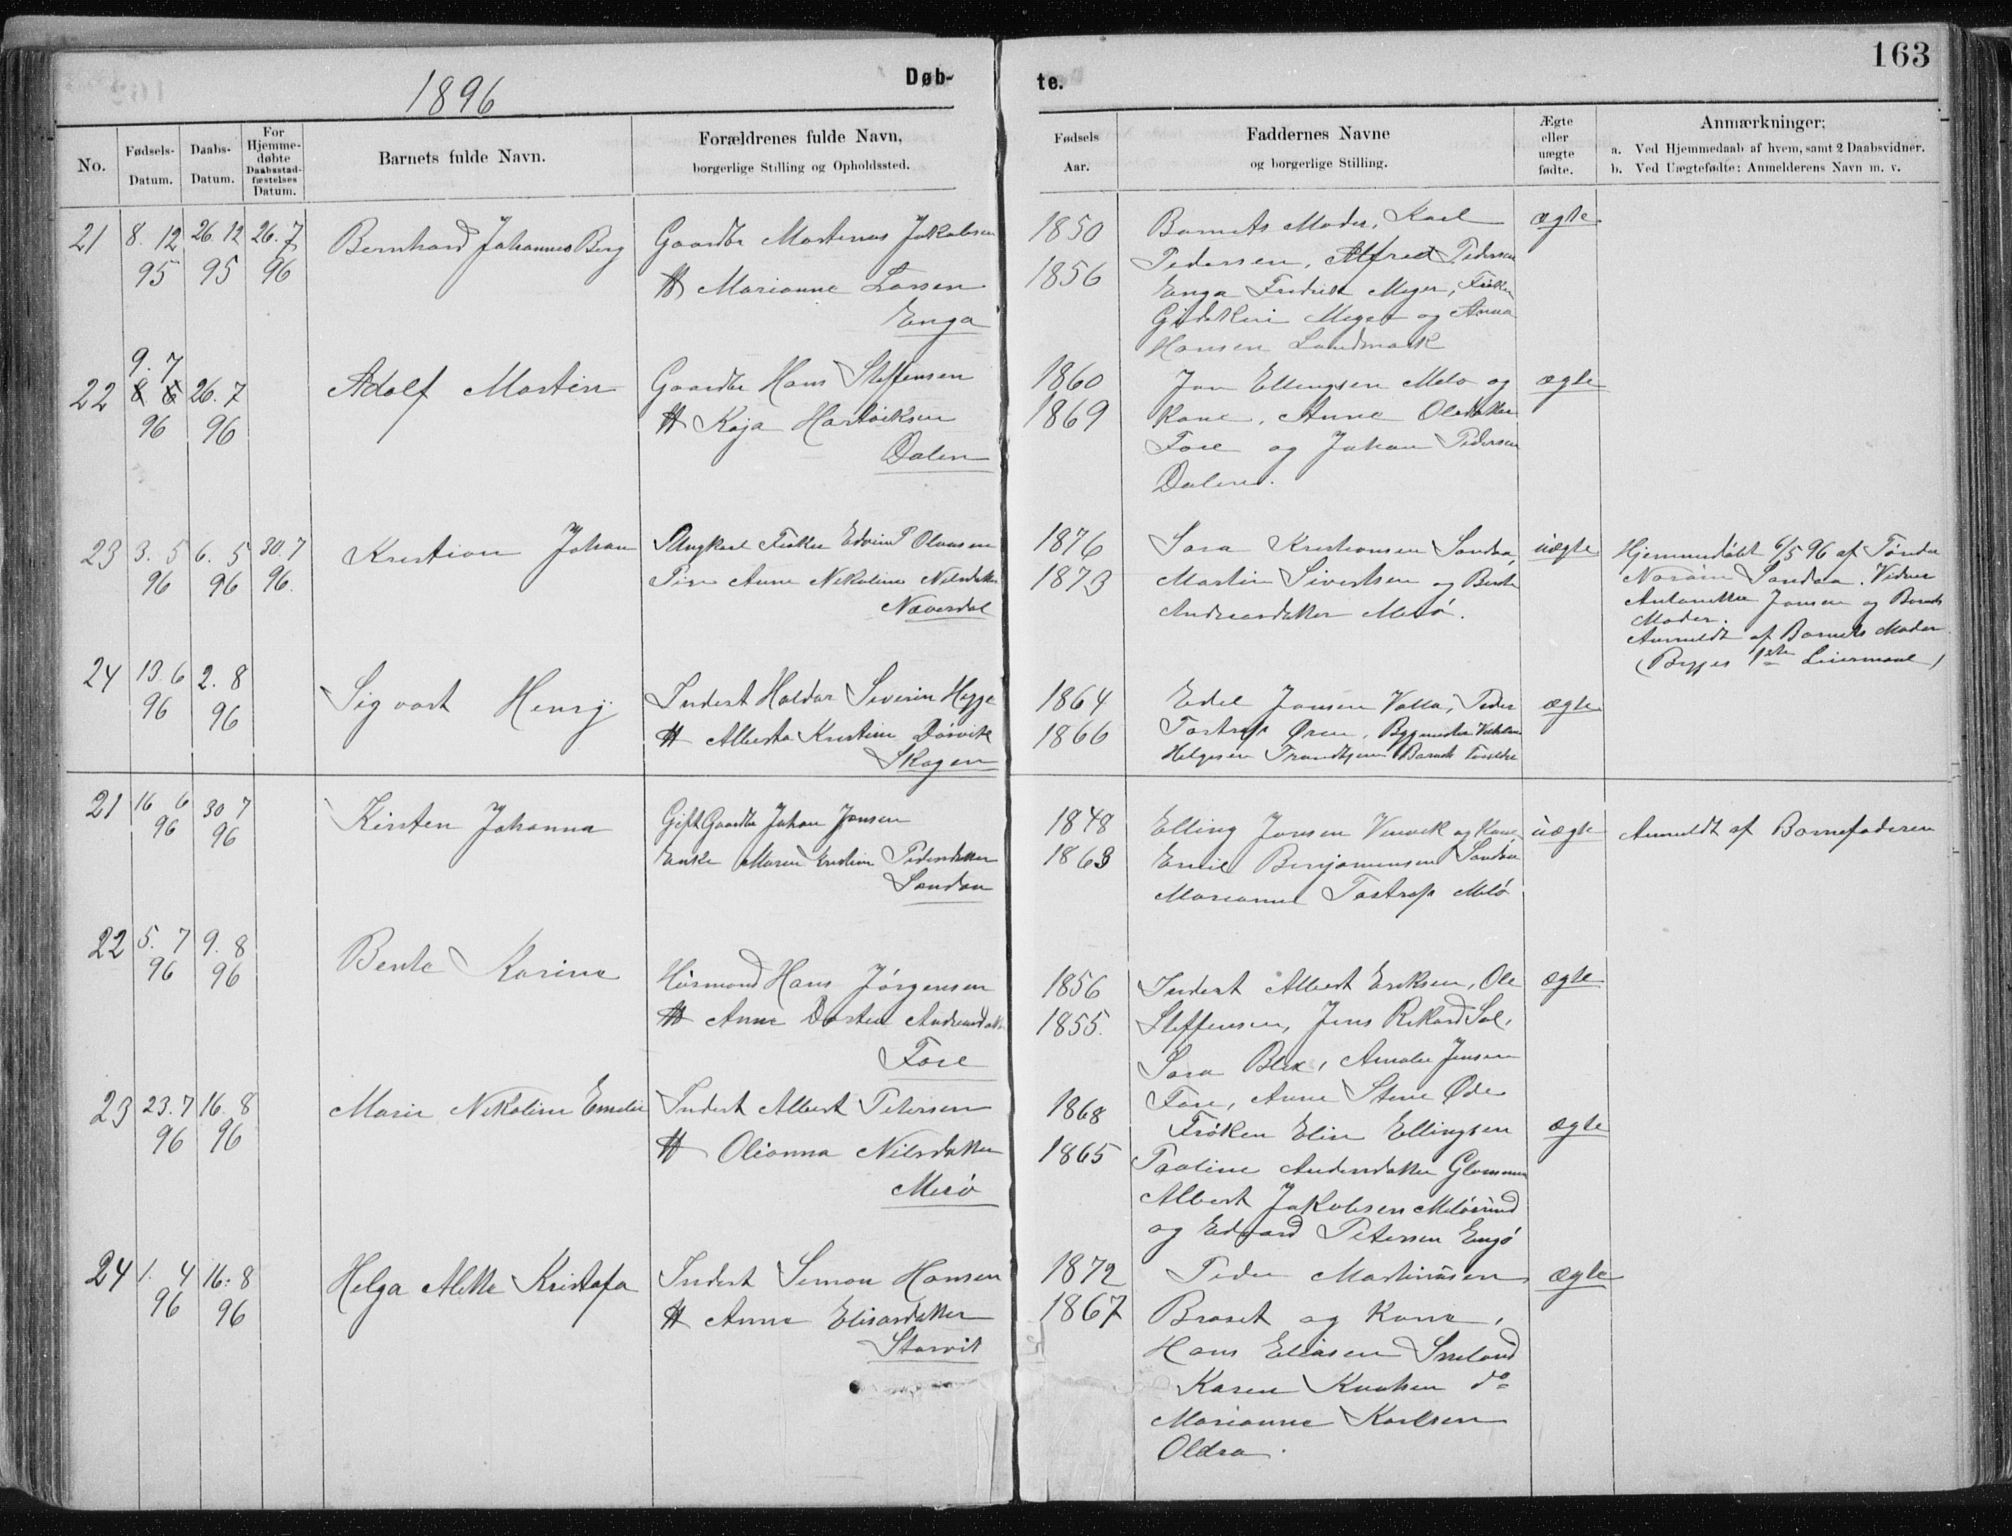 163
1896
Døb-
te.
No.
Fødsels-
Datum.
Daabs-
Datum.
For
Hjemme-
døbte
Daabsstad-
fæstelses
Datum.
Barnets fulde Navn.
Forældrenes fulde Navn,
borgerlige Stilling og Opholdssted.
Fødsels
Aar.
Faddernes Navne
og borgerlige Stilling.
Ægte
eller
uægte
fødte.
Anmærkninger:
a. Ved Hjemmedaab af hvem, samt 2 Daabsvidner.
b. Ved Uægtefødte: Anmelderens Navn m. v.
21
8. 12
95
26. 12
95
26. 7
96
Bernhard Johannes Berg
Gaardbr Martenus Jakobsen
H Marianne Larsen
Enga
1850
1856
Barnets Moder, Karl
Pedersen, Alfred Pedersen
Enga Fredrik Meyer, Frøken
Meyer og Anna
Hansen Landmark
ægte
22
9. 7
8 6
96
26. 7
96
Adolf Martin
Gaardbr Hans Steffensen
H Kaja Hartviksen
Dalen
1860
1869
Jon Ellingsen Melø og
Kone, Anne Olsdatter
Fore og Johan Pedersen
Dalen.
ægte
23
3. 5
96
6. 5
96
30. 7
96.
Kristian Johan
Ungkarl Fisker Edvin P Olaussen
Pige Anne Nikoline Nilsdatter
Næverdal
1876
1873
Sara Kristiansen Sandaa,
Martin Sivertsen og Berte
Andreasdatter Melø.
uægte
Hjemmedøbt 6/5 96 af
Sandaa. Vidner
Jansen og Barnets
Moder.
Anmeldt af Barnets Moder
(Begges 1ste Leiermaal)
24
13. 6
96
2. 8
96
Sigvart Henry
Inderst Haldor Severin Hagge
H Alberta Kristine Dørvik
Skogen
1864
1866
Edel Jansen Valla, Peder
Tostrup Øren, Bygmester Vilhelm
Helgesen Trondhjem Barnets Forældre
ægte
21
16 6
96
30 7
96
Kirsten Johanna
Gift Gaardbr Johan Jonsen
Enke Maren Kristine Pedersdatter
Sandaa
1848
1863
Elling Jonsen Vinvik og Kone,
Emil Benjaminsen Sandaa
Marianne Tostrup Melø
uægte
Anmeldt af Barnefaderen
22
5. 7
96
9. 8
96
Bente Karine
Husmand Hans Jørgensen
H Anne Dorten Andreasdatter
Fore
1856
1855.
Inderst Albert Eriksen, Ole
Steffensen, Jens Rikard Sol,
Sara Blix, Amalie Jensen
Fore, Anne Stene Øde
ægte
23
23. 7
96
16. 8
96
Marie Nikoline Emelie
Inderst Albert Petersen
H Olianna Nilsdatter
Mesø
1868
1865
Frøken Elin Ellingsen
Pauline Andersdatter Glommen
Albert Jakobsen Meløsund
og Edvard Petersen Engø
ægte
24
1. 4
96
16. 8
96
Helga Alette Kristofa
Inderst Simon Hansen
H Anne Eliasdatter
Storvik
1872
1867
Peder Martinusen
Braset og Kone,
Hans Eliasen Smeland
Karen Knutsen do
Marianne Karlsen
Oldra.
ægte